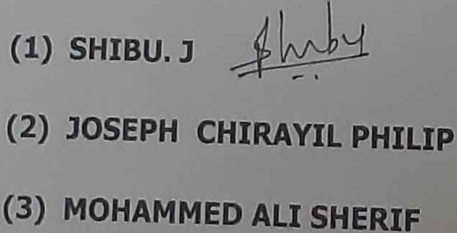 (1) SHIBU. J Shiby
(2) JOSEPH CHIRAYIL PHILIP
(3) MOHAMMED ALI SHERIF